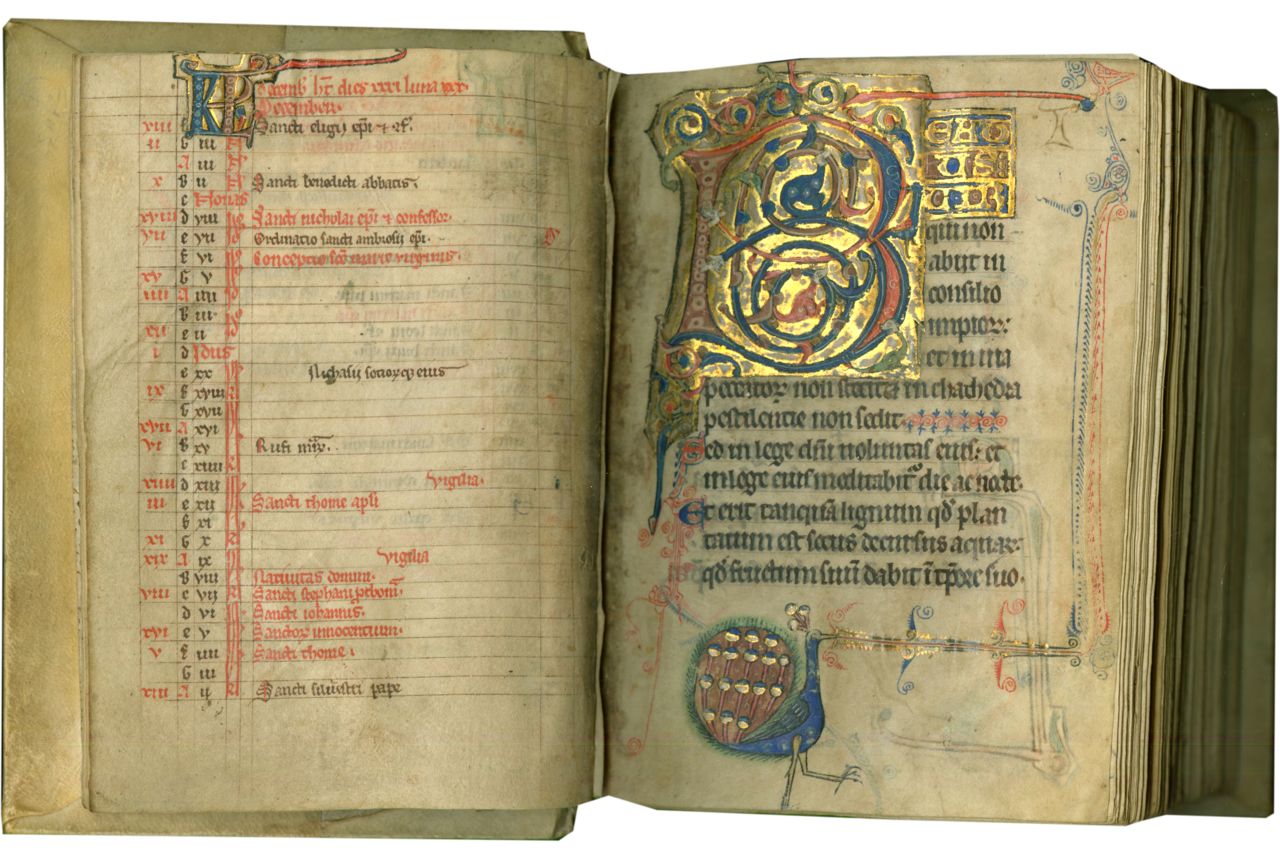 KL
Decemb ht dies xxxi luna xxx.
Decembris.
xiii f Sancti eligii epi & cf.
ii G iiii N
A iii N
x B ii N Sancti benedicti abbatis.
c Nonas
xviii d viii id Sancti nicholai epi & confessor.
vii e vii id Ordinatio sancti ambrosii epi.
f vi id Conceptio sce marie virginis.
xv G v id
iiii A iiii id
B iii id
xii c ii id
i d Idus
e xx kl Nichasii sociorumq eius
ix f xviii kl
G xvii kl
xvii A xvi kl
vi B xv kl Rufi mr.
c xiiii kl
xiiii d xiii kl Vigilia.
iii e xii kl Sancti thome apli
f xi kl
xi G x kl
xix A ix kl Vigilia
B viii kl Nativitas domini.
viii c vii kl Sancti stephani prothom.
d vi kl Sancti iohannis.
xvi e v kl Sanctor innocentium.
v f iiii kl Sancti thome.
G iii kl
xiii A ii kl Sancti silvestri pape
BEAT
US
qui non
abiit in
consilio
impior:
et in uia
peccator non stetit & in chathedra
pestilencie non sedit.
Sed in lege dni uoluntas eius: et
in lege eius meditabit die ac nocte.
Et erit tanquam lignum qd plan
tatum est secus decursus aquar:
qd fructum suum dabit i tpre suo.